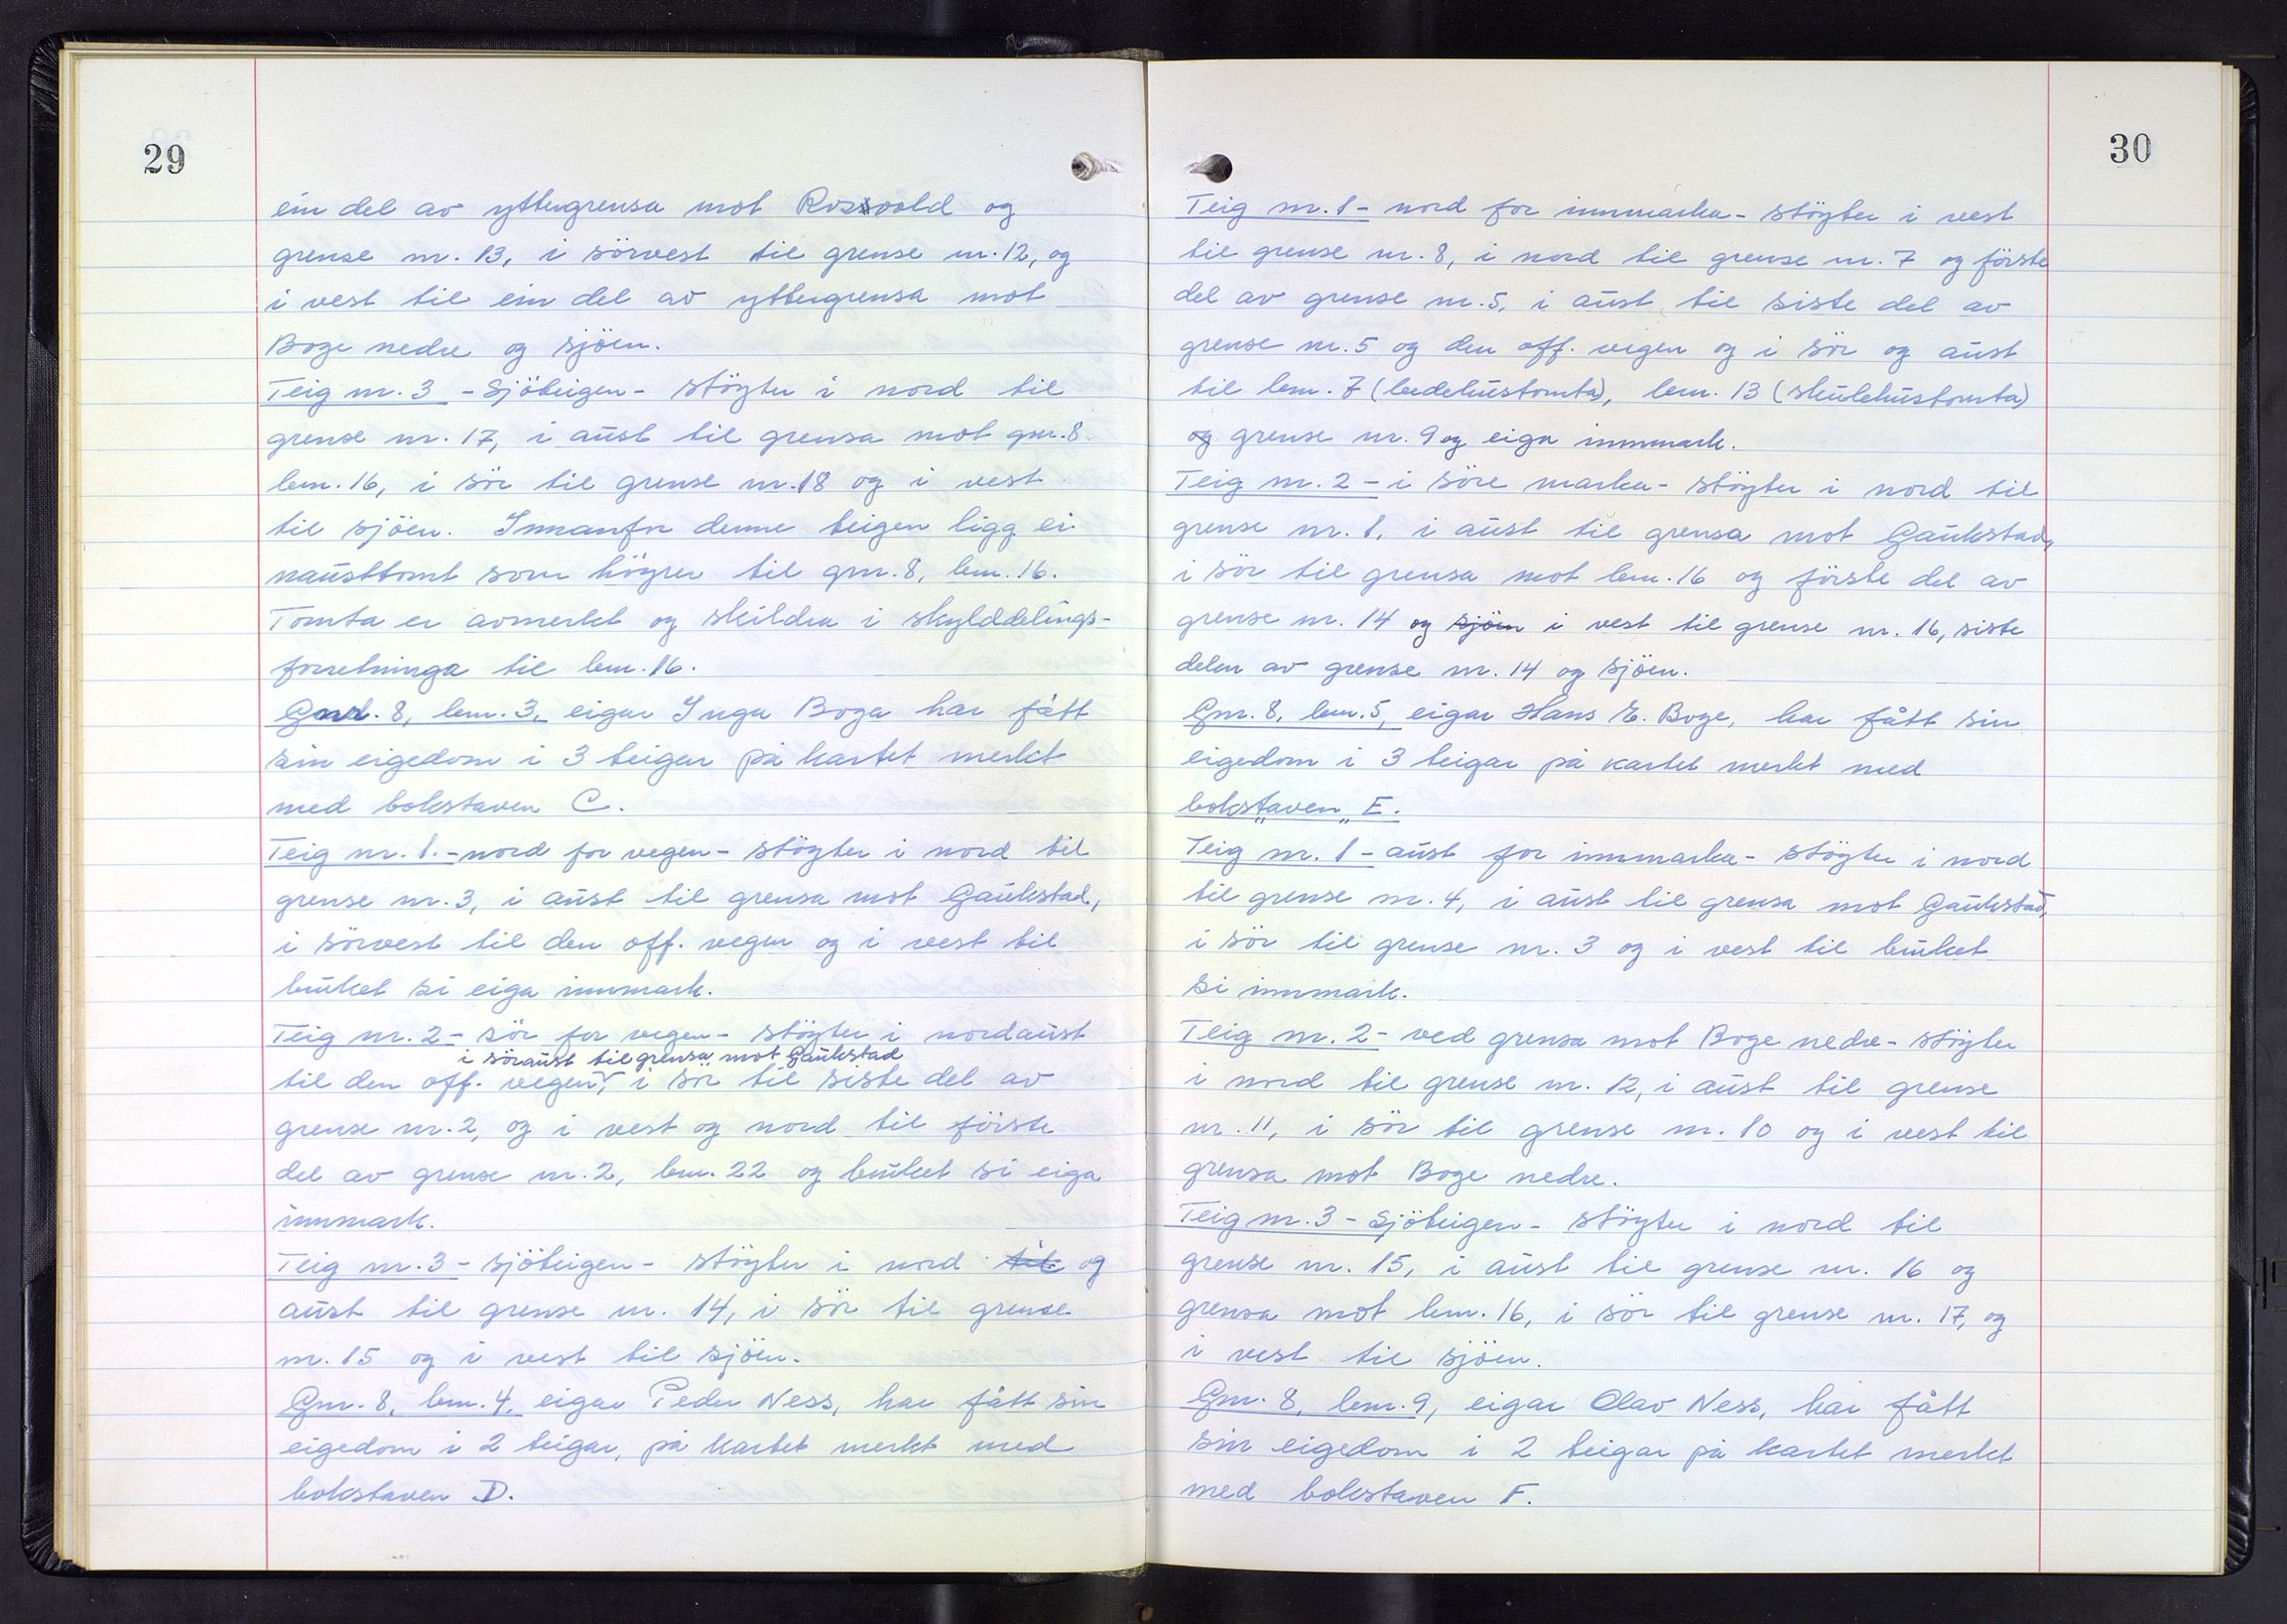 29
ein del av yttergrensa mot Rossvold og
grense nr. 13, i sörvest til grense nr. 12, og
i vest til ein del av yttergrensa mot
Boge nedre og sjöen.
Teig nr. 3 - Sjöteigen - stöyter i nord til
grense nr. 17, i aust til grensa mot gnr. 8.
bnr. 16, i sör til grense nr. 18 og i vest
til sjöen. Innanfor denne teigen ligg ei
nausttomt som höyrer til gnr. 8, bnr. 16.
Tomta er avmerkt og skildra i skylddelings-
forretninga til bnr. 16.
Gnr. 8, bnr. 3, eigar Inga Boga har fått
sin eigedom i 3 teigar på kartet merkt
med bokstaven C.
Teig nr. 1. - nord for vegen - stöyter i nord til
grense nr. 3, i aust til grensa mot Gaukstad,
i sörvest til den off. vegen og i vest til
bruket si eiga innmark.
Teig nr. 2 - sör for vegen - stöyter i nordaust
i söraust til grensa mot Gaukstad
til den off. vegen, i sör til siste del av
grense nr. 2, og i vest og nord til förste
del av grense nr. 2, bnr. 22 og bruket si eiga
innmark.
Teig nr. 3 - sjöteigen - stöyter i nord til og
aust til grense nr. 14, i sör til grense
nr. 15 og i vest til sjöen.
Gnr. 8, bnr. 4, eigar Peder Ness, har fått sin
eigedom i 2 teigar, på kartet merkt med
bokstaven D.
30
Teig nr. 1 - nord for innmarka - stöyter i vest
til grense nr. 8, i nord til grense nr. 7 og förste
del av grense nr. 5, i aust til siste del av
grense nr. 5 og den off. vegen og i sör og aust
til bnr. 7 (bedehustomta), bnr. 13 (skulehustomta)
og grense nr. 9 og eiga innmark.
Teig nr. 2 - i söre marka - stöyter i nord til
grense nr. 1, i aust til grensa mot Gaukstad,
i sör til grensa mot bnr. 16 og förste del av
grense nr. 14 og sjöen i vest til grense nr. 16, siste
delen av grense nr. 14 og sjöen.
Gnr. 8, bnr. 5, eigar Hans E. Boge, har fått sin
eigedom i 3 teigar på kartet merkt med
bokstaven „E.
Teig nr. 1 - aust for innmarka - stöyter i nord
til grense nr. 4, i aust til grensa mot Gaukstad,
i sör til grense nr. 3 og i vest til bruket
si innmark.
Teig nr. 2 - ved grensa mot Boge nedre - stöyter
i nord til grense nr. 12, i aust til grense
nr. 11, i sör til grense nr. 10 og i vest til
grensa mot Boge nedre.
Teig nr. 3 - Sjöteigen - stöyter i nord til
grense nr. 15, i aust til grense nr. 16 og
grensa mot bnr. 16, i sör til grense nr. 17, og
i vest til sjöen.
Gnr. 8, bnr. 9, eigar Olav Ness, har fått
sin eigedom i 2 teigar på kartet merkt
med bokstaven F.